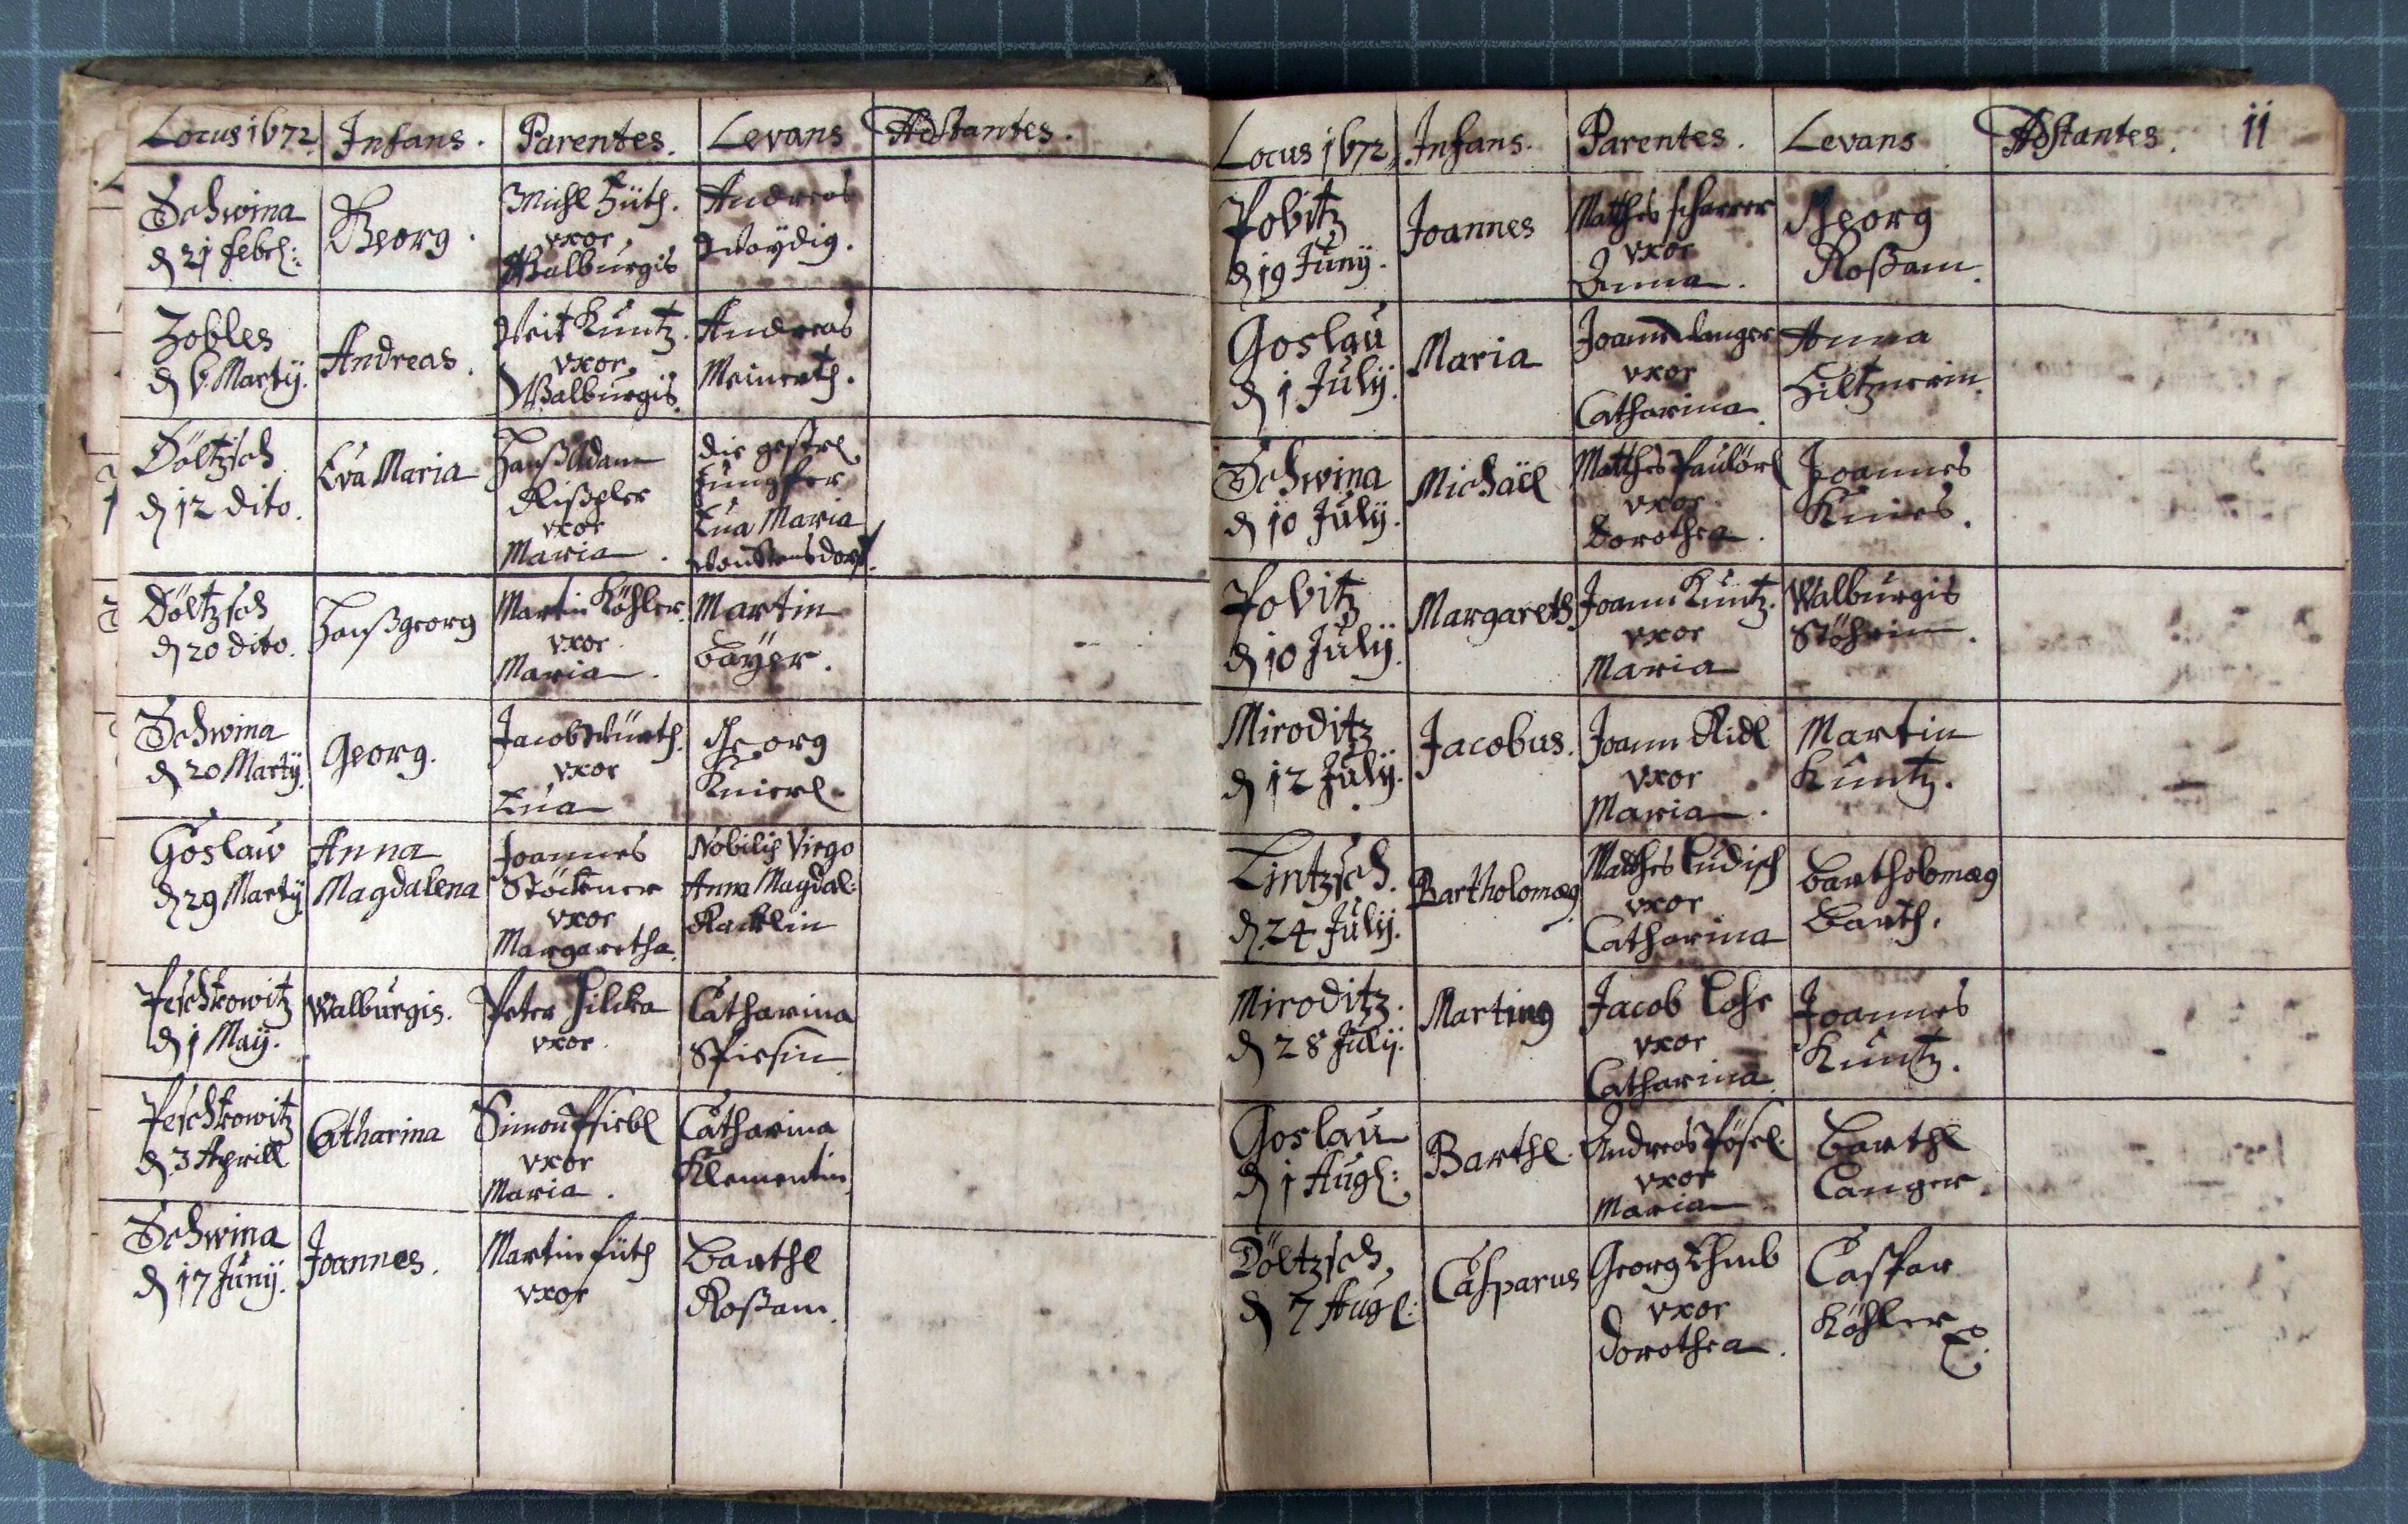 Locus 1672. Infans. Parentes. Levans Adstantes.
Schwina
d 21 febr: Georg. Michl Füth.
vxor
Walburgis Andreas
Woÿdig.
Zobles
d 6 Martÿ. Andreas. Veit Kuntz.
vxor.
Walburgis. Andreas
Meinerth.
Döltzsch
d 12 dito. Eva Maria Hanß Adam
Rißpler
vxor
Maria. die gestr.
Jungfer
Eua Maria
Döltzsch
d 20 dito. Hanßgeorg Martin Köhler.
vxor
Maria. Martin
baÿer.
Schwina
d 20 Martÿ. Georg. Jacob Würth.
vxor
Eua Georg
Knierl.
Goslaw
d 29 Martÿ. Anna
Magdalena Joannes
Stöckner
vxor
Margaretha. Nobilis Virgo
Anna Magdal:
Racklin
Peschkowitz
d 1 Maÿ. Walburgis. Peter Hilcka
vxor. Catharina
Spiesin
Peschkowitz
d 3 Aprill Catharina Simon Pfiebl
vxor
Maria. Catharina
Klementin
Schwina
d 17 Junÿ. Joannes. Martin füth
vxor Barthl
Roßam.
Locus 1672. Infans. Parentes. Levans Adstantes. 11
Pobitz
d 19 Junÿ. Joannes Matthes scharrer
vxor
Anna. Georg
Roßam.
Goslau
d 1 Julÿ. Maria Joann langer
vxor
Catharina. Anna
Hiltznerin.
Schwina
d 10 Julÿ. Michäel Matthes Paulörl
vxor
Dorothea. Joannes
Knies.
Pobitz
d 10 Julÿ. Margareth Joann Kuntz.
vxor
Maria Walburgis
Stöhrin.
Miroditz
d 12 Julÿ. Jacobus. Joann Ridl
vxor
Maria. Martin
Kuntz.
Lintzsch.
d 24 Julÿ. Bartholomæ9 Matthes Ludisch
vxor
Catharina bartholomæ9
Barth.
Miroditz.
d 28 Julÿ. Martin9 Jacob Lohr
vxor
Catharina Joannes
Kuntz.
Goslau
d 1 Aug: Barthl. Andreas Pösel.
vxor
Maria Barthl
Langer.
Döltzsch,
d 7 Aug: Casparus Georg Thumb
vxor
Dorothea. Caspar
Köhler